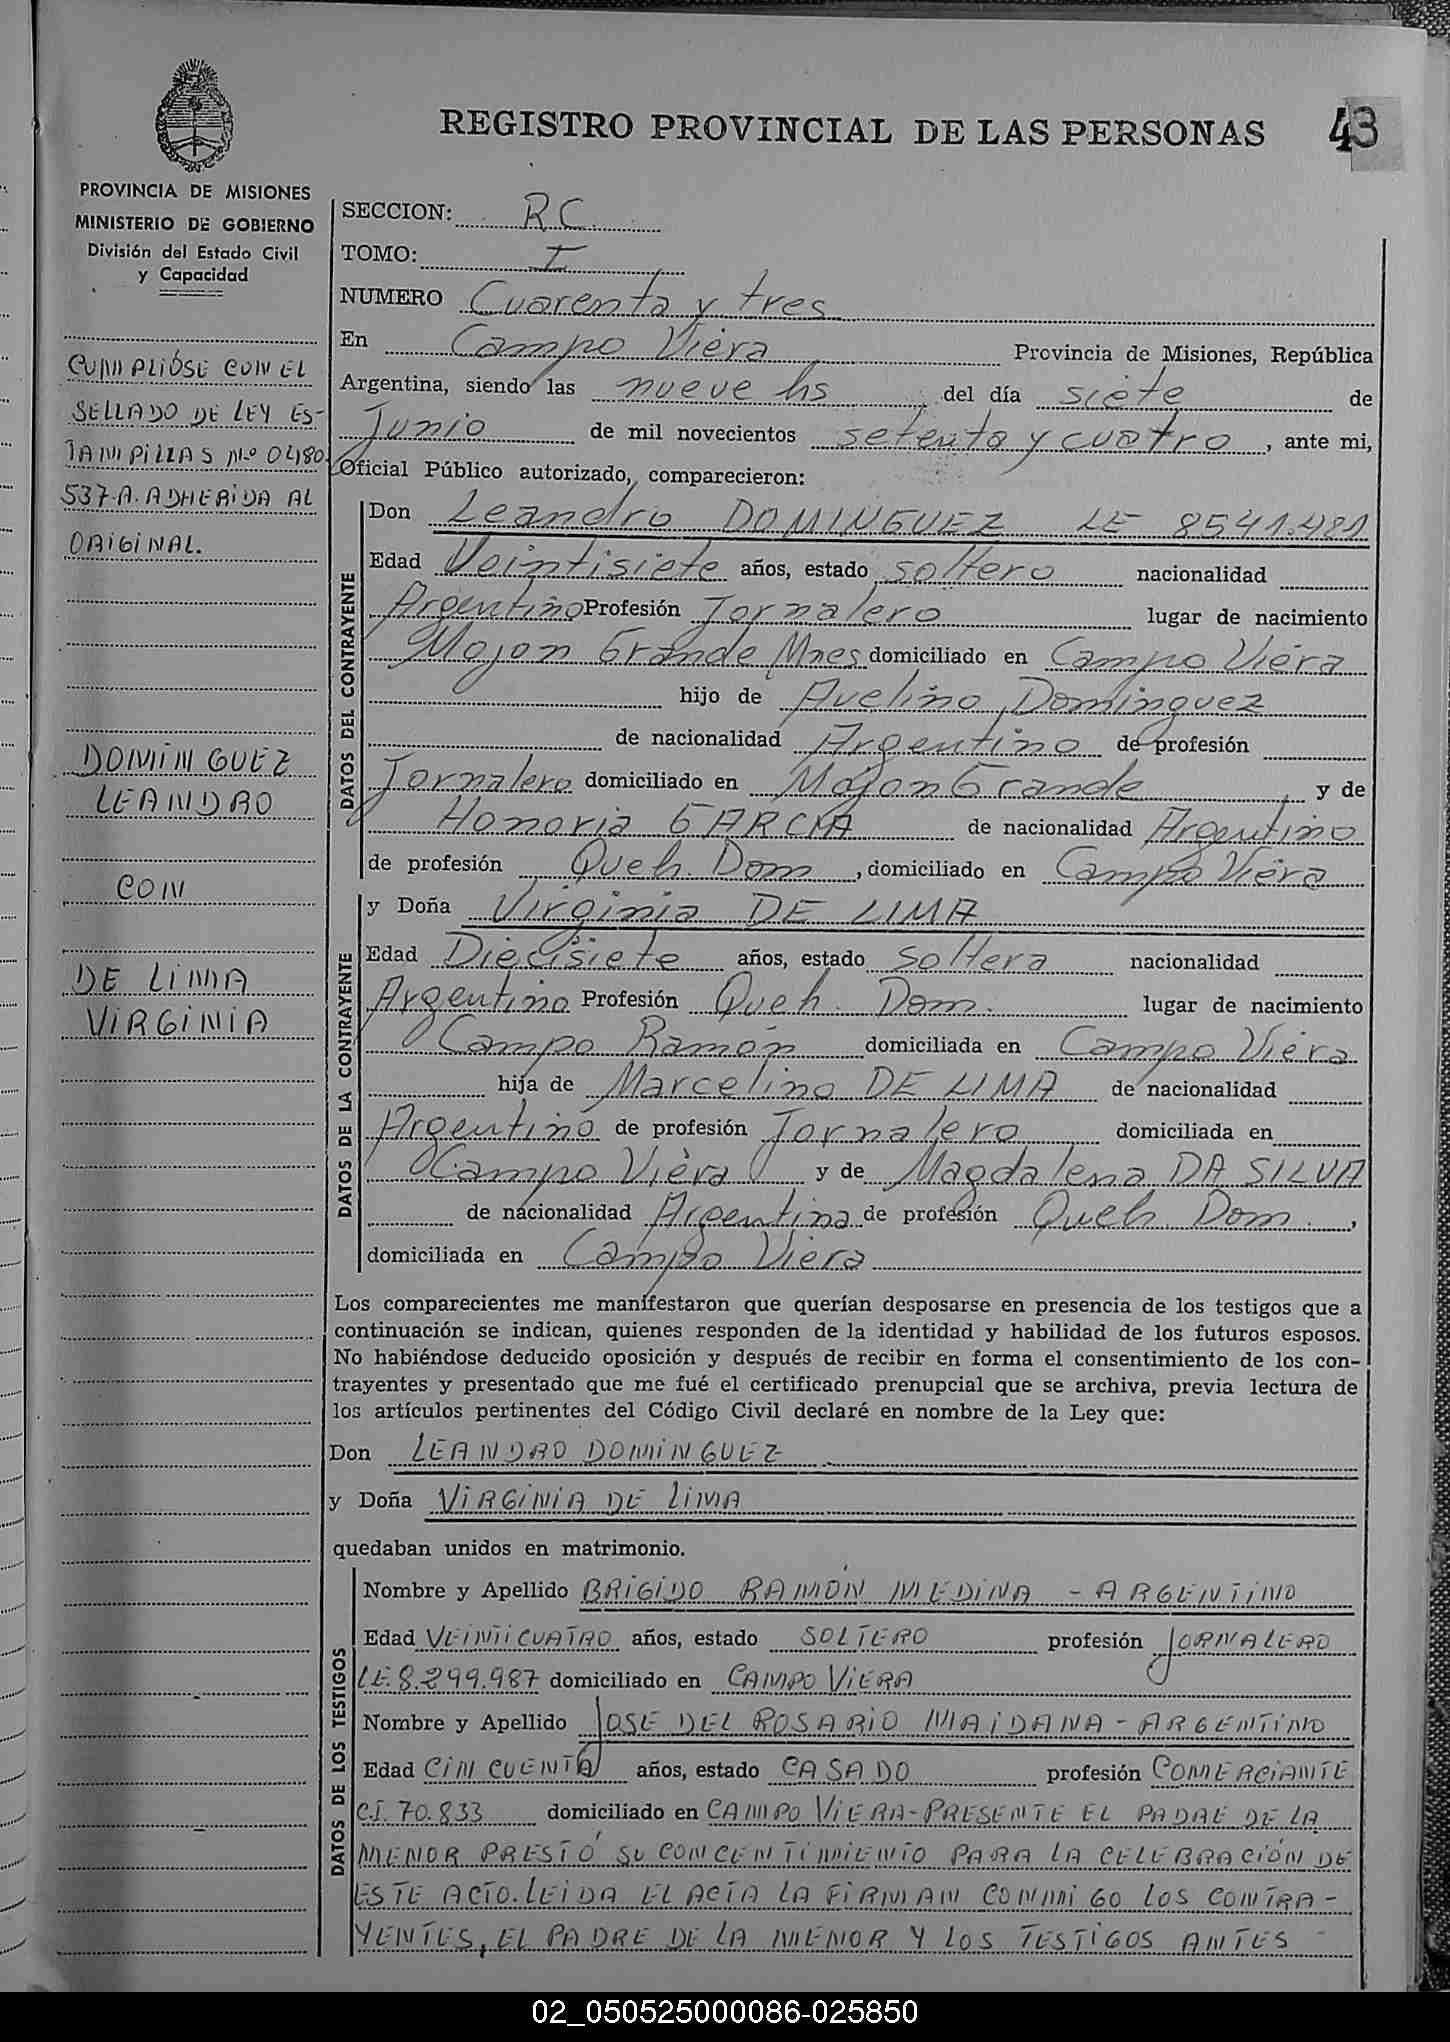 REGISTRO PROVINCIAL DE LAS PERSONAS
43
PROVINCIA DE MISIONES
MINISTERIO DE GOBIERNO
División del Estado Civil
y Capacidad
CUMPLIÓSE CON EL
SELLADO DE LEY ES-
TAMPILLAS Nº 0480
537-A. ADHERIDA AL
ORIGINAL.
DOMINGUEZ
LEANDRO
CON
DE LIMA
VIRGINIA
SECCION: RC.
TOMO: I
NUMERO Cuarenta y tres
En Campo Viera Provincia de Misiones, República
Argentina, siendo las nueve hs del día siete de
Junio de mil novecientos setenta y cuatro, ante mi,
Oficial Público autorizado, comparecieron:
DATOS DEL CONTRAYENTE
Don Leandro DOMINGUEZ LE 8541.481
Edad Veintisiete años, estado soltero nacionalidad
Argentino Profesión Jornalero lugar de nacimiento
Mojon Grande Mnes domiciliado en Campo Viera
hijo de Avelino Dominguez
de nacionalidad Argentino de profesión
Jornalero domiciliado en Mojon Grande y de
Honoria GARCIA de nacionalidad Argentino
de profesión Queh. Dom, domiciliado en Campo Viera
DATOS DE LA CONTRAYENTE
y Doña Virginia DE LIMA
Edad Diecisiete años, estado soltera nacionalidad
Argentino Profesión Queh. Dom. lugar de nacimiento
Campo Ramón domiciliada en Campo Viera
hija de Marcelino DE LIMA de nacionalidad
Argentino de profesión Jornalero domiciliada en
Campo Viera y de Magdalena DA SILVA
de nacionalidad Argentina de profesión Queh. Dom.,
domiciliada en Campo Viera
Los comparecientes me manifestaron que querían desposarse en presencia de los testigos que a
continuación se indican, quienes responden de la identidad y habilidad de los futuros esposos.
No habiéndose deducido oposición y después de recibir en forma el consentimiento de los con-
trayentes y presentado que me fué el certificado prenupcial que se archiva, previa lectura de
los artículos pertinentes del Código Civil declaré en nombre de la Ley que:
Don LEANDRO DOMINGUEZ
y Doña VIRGINIA DE LIMA
quedaban unidos en matrimonio.
DATOS DE LOS TESTIGOS
Nombre y Apellido BRIGIDO RAMÓN MEDINA - ARGENTINO
Edad VEINTICUATRO años, estado SOLTERO profesión JORNALERO
LE.8.299.987 domiciliado en CAMPO VIERA
Nombre y Apellido JOSE DEL ROSARIO MAIDANA - ARGENTINO
Edad CINCUENTA años, estado CASADO profesión COMERCIANTE
C.I. 70.833 domiciliado en CAMPO VIERA-PRESENTE EL PADRE DE LA
MENOR PRESTÓ SU CONCENTIMIENTO PARA LA CELEBRACIÓN DE
ESTE ACTO. LEIDA EL ACTA LA FIRMAN CONMIGO LOS CONTRA-
YENTES, EL PADRE DE LA MENOR Y LOS TESTIGOS ANTES -
02_050525000086-025850